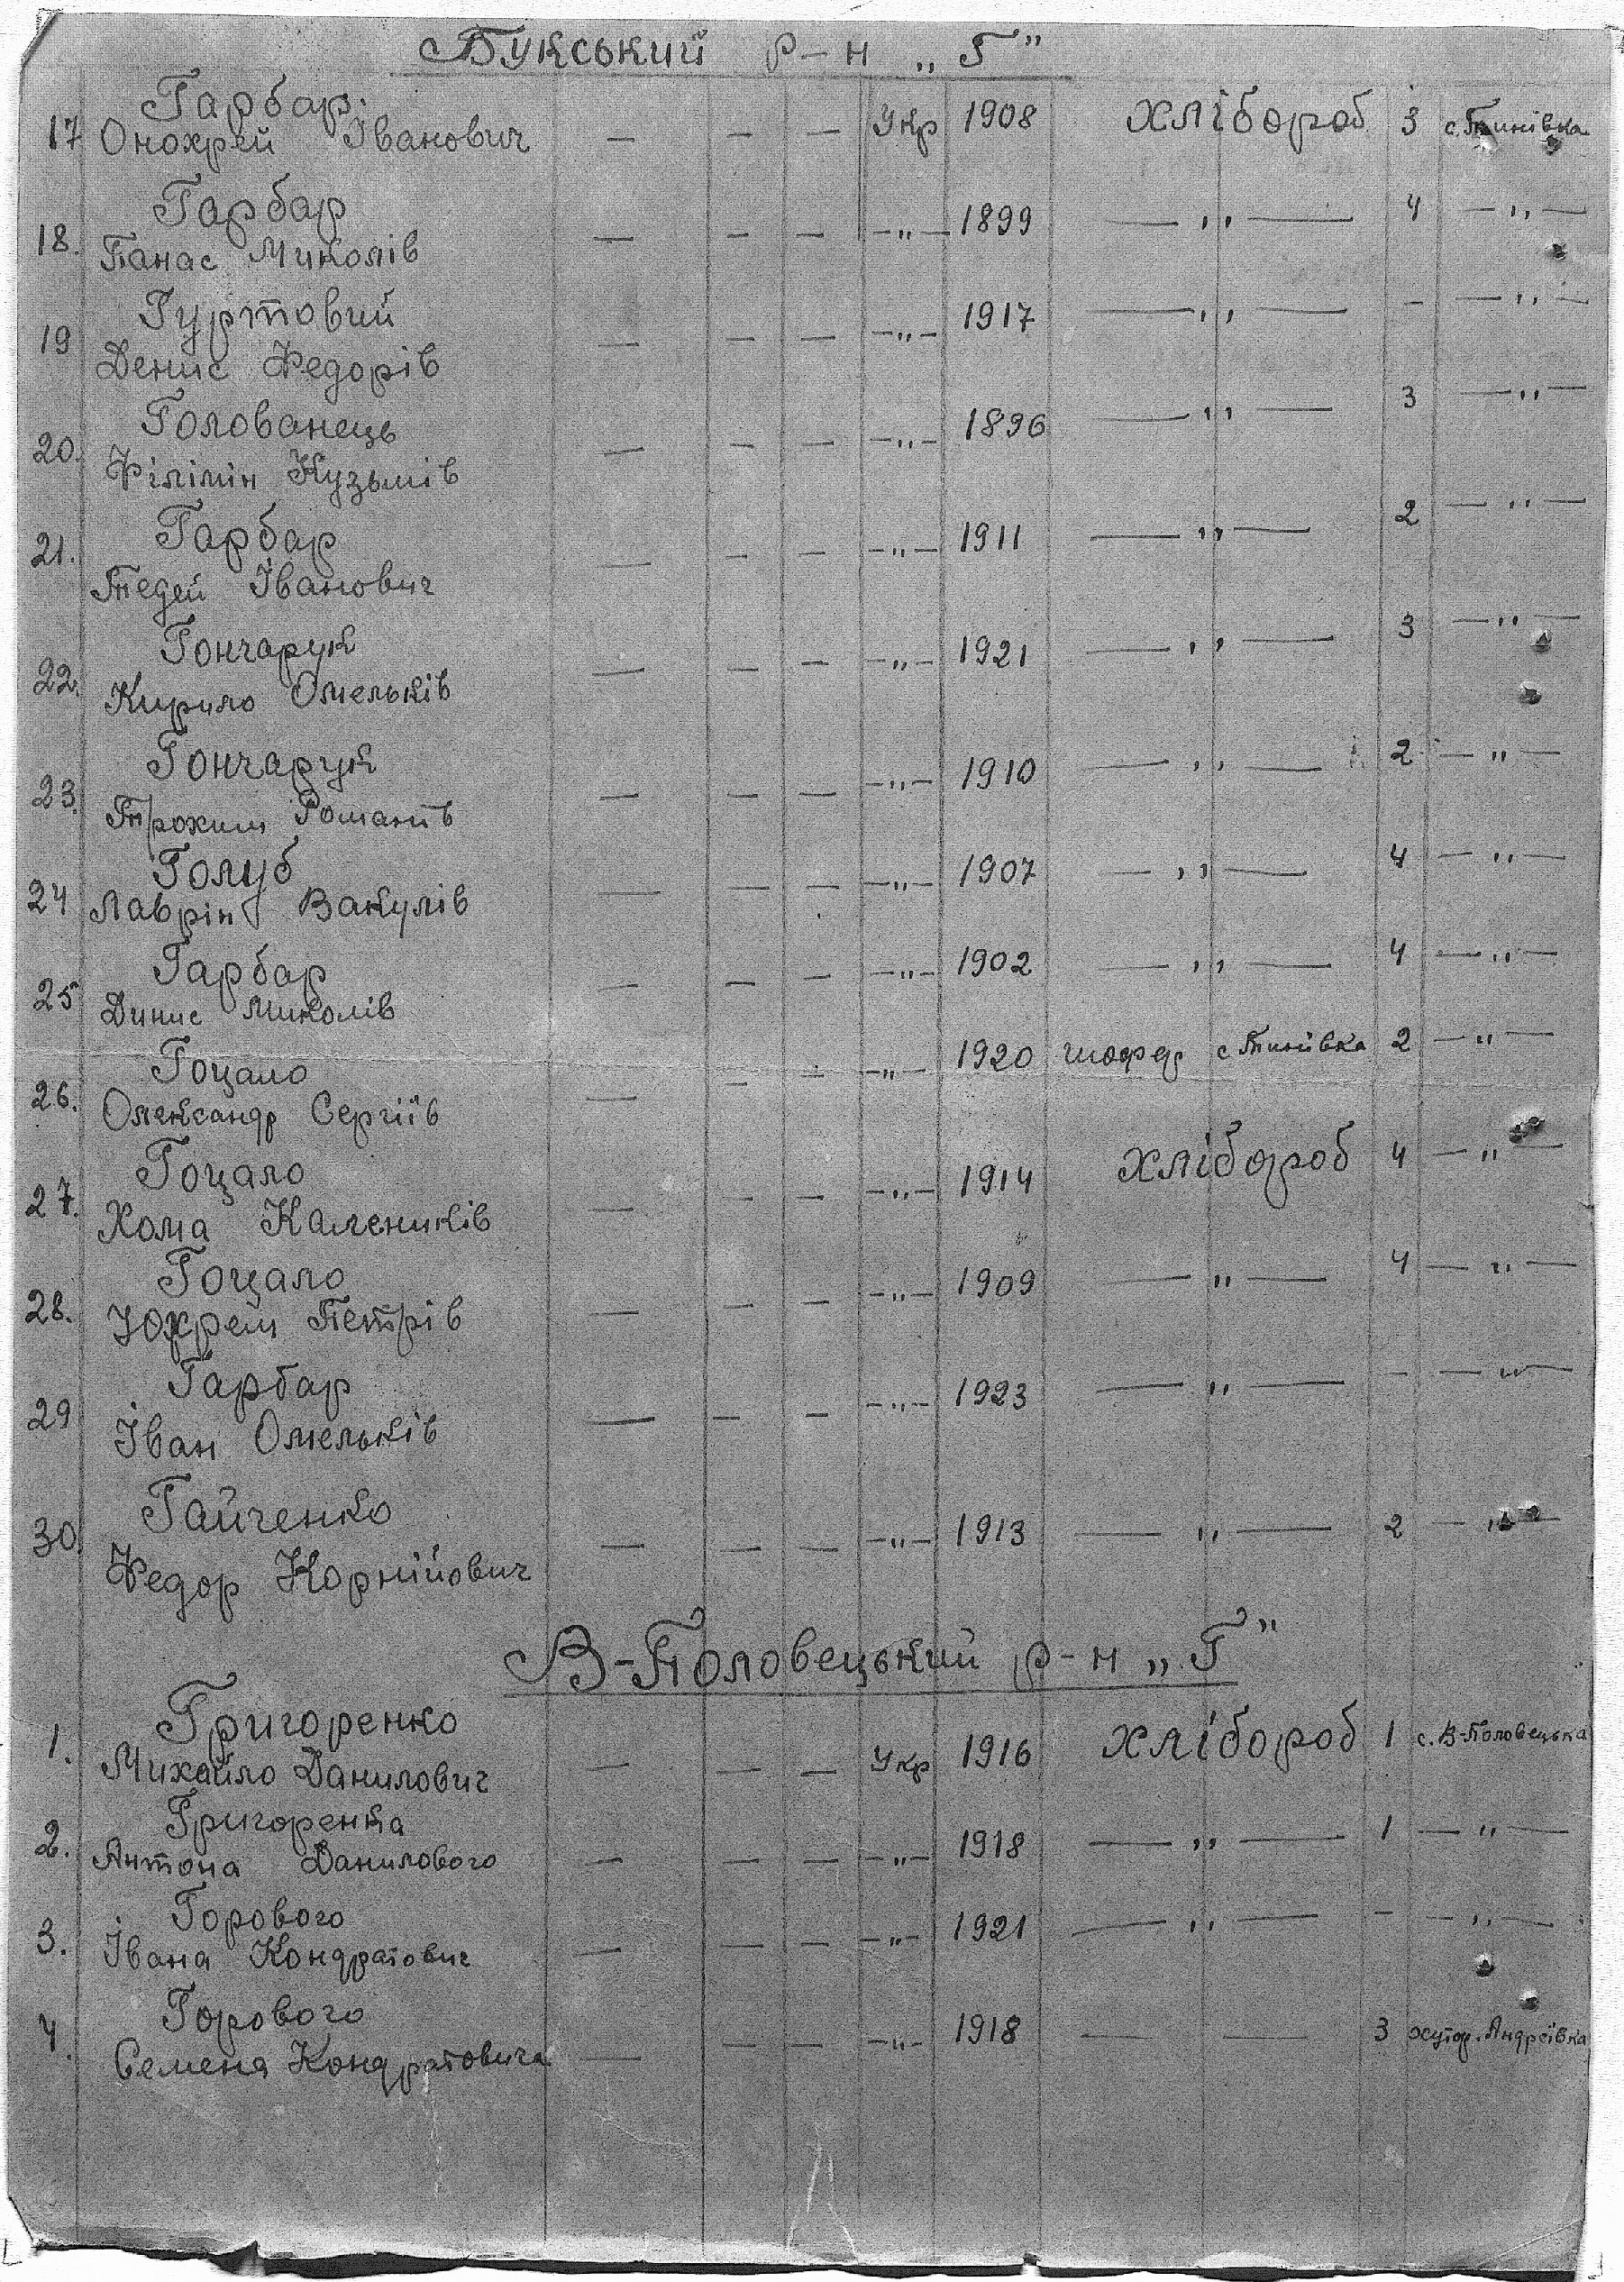 Букський р-н „Г"
Гарбар
17 Онохрей Іванович — — — Укр 1908 хлібороб 3 с. Тинівка
Гарбар
18. Панас Миколів — — — —„— 1899 —„— 4 —„—
Гуртовий
19 Денис Федорів — — — —„— 1917 —„— - —„—
Голованець
20. Філімін Кузьмів — — — —„— 1896 —„— 3 —„—
Гарбар
21. Тедей Іванович — — — —„— 1911 —„— 2 —„—
Гончарук
22. Кирило Омельків — — — —„— 1921 —„— 3 —„—
Гончарук
23. Трохим Романів — — — —„— 1910 —„— 2 —„—
Голуб
24 Лаврін Вакулів — — — —„— 1907 —„— 4 —„—
Гарбар
25 Динис Миколів — — — —„— 1902 —„— 4 —„—
Гоцало
26. Олександр Сергіїв — — — —„— 1920 шофер с Тинівка 2 —„—
Гоцало
27. Хома Калеників — — — —„— 1914 хлібороб 4 —„—
Гоцало
28. Юхрем Петрів — — — —„— 1909 —„— 4 —„—
Гарбар
29 Іван Омельків — — — —„— 1923 —„— - —„—
Гайченко
30. Федор Корнійович — — — —„— 1913 —„— 2 —„—
В-Половецький р-н „Г"
Григоренко
1. Михайло Данилович — — — Укр 1916 хлібороб 1 с. В-Половецька
Григоренка
2. Антона Данилового — — — —„— 1918 —„— 1 —„—
Горового
3. Івана Кондратович — — — —„— 1921 —„— - —„—
Горового
4. Семена Кондратовича — — — —„— 1918 — — 3 хутор. Андреївка